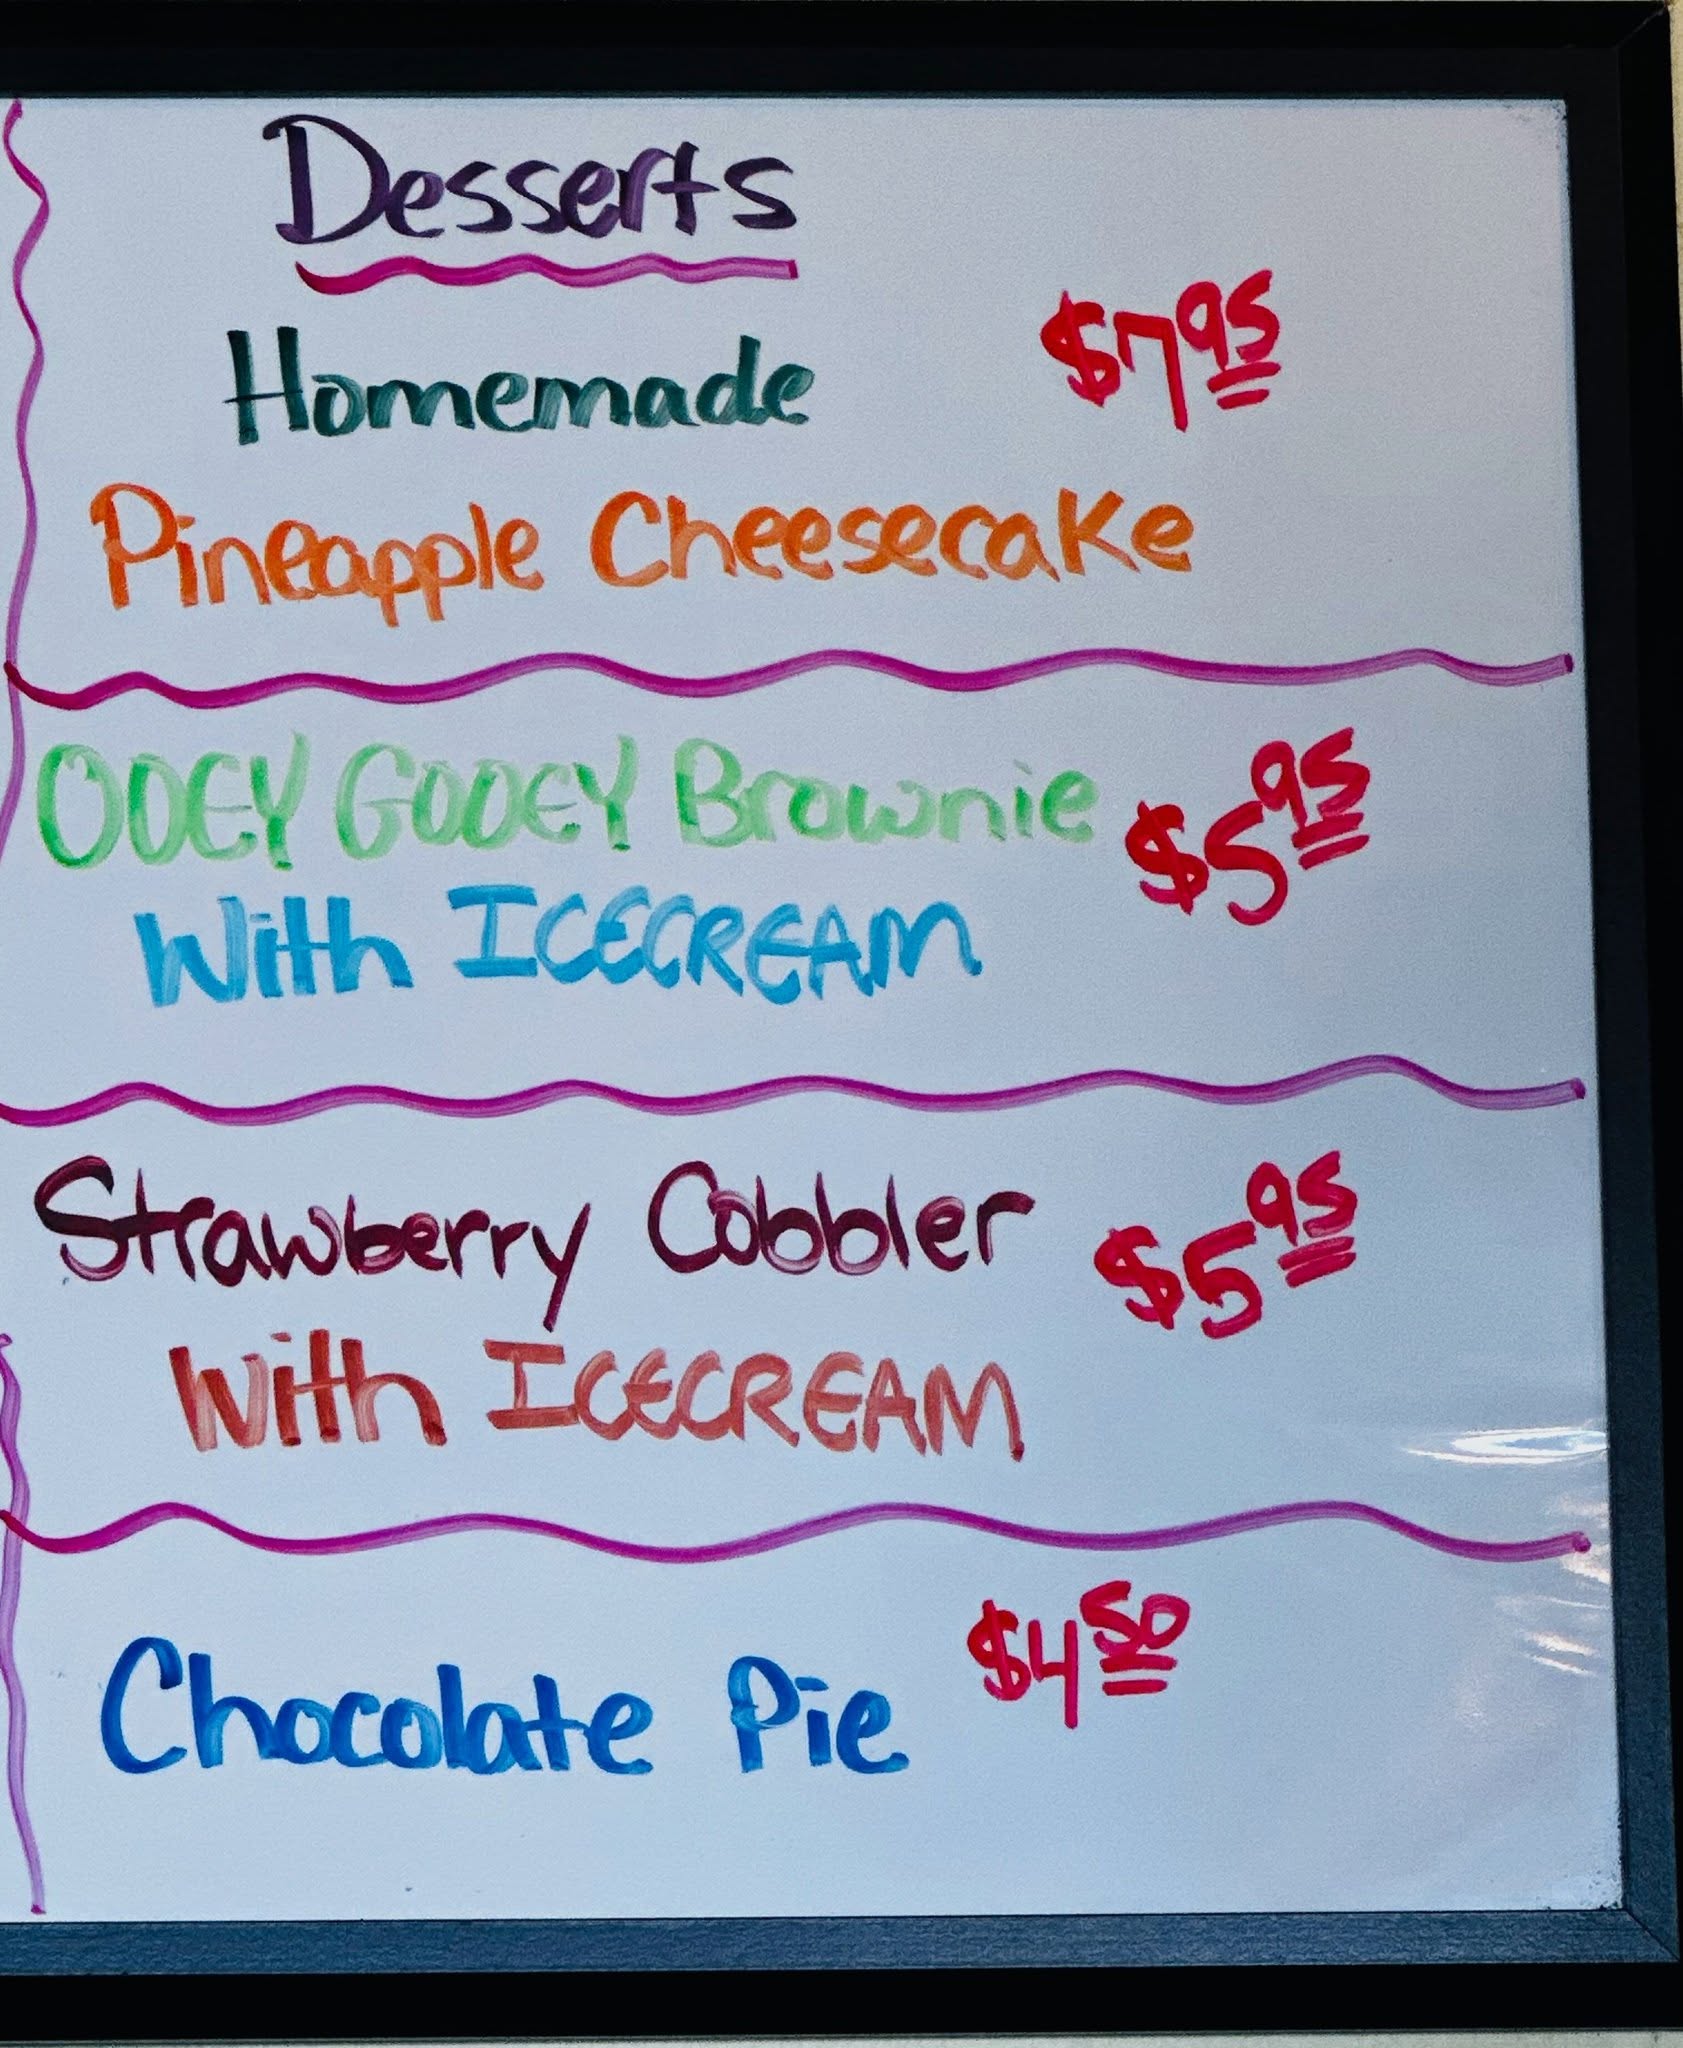 Desserts
Homemade $7.95
Pineapple Cheesecake
OOEY GOOEY Brownie $5.95
With ICECREAM
Strawberry Cobbler $5.95
With ICECREAM
Chocolate Pie $4.50